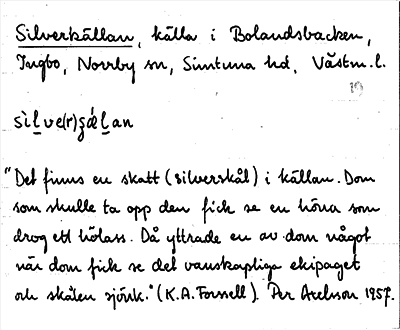 Silverkällan, källa i Bolandsbacken,
Ingbo, Norrby sn, Simtuna hd, Västm. l.
19
sìḻve(r)ʒǽḻan
"Det finns en skatt (silverskål) i källan. Dom
som skulle ta opp den fick se en höna som
drog ett hölass. Då yttrade en av dom något
när dom fick se det vanskapliga ekipaget
och skålen sjönk." (K.A. Forssell). Per Axelsson 1957.